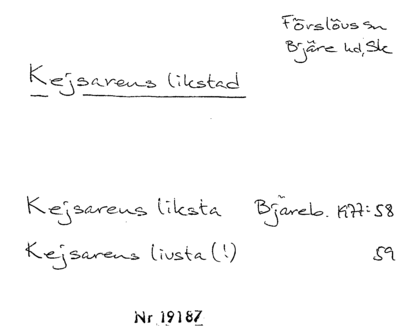 Förslövs sn
Bjäre hd, Sk
Kejsarens likstad
Kejsarens liksta Bjäreb. 1977:58
Kejsarens liusta (!) 59
Nr 19187